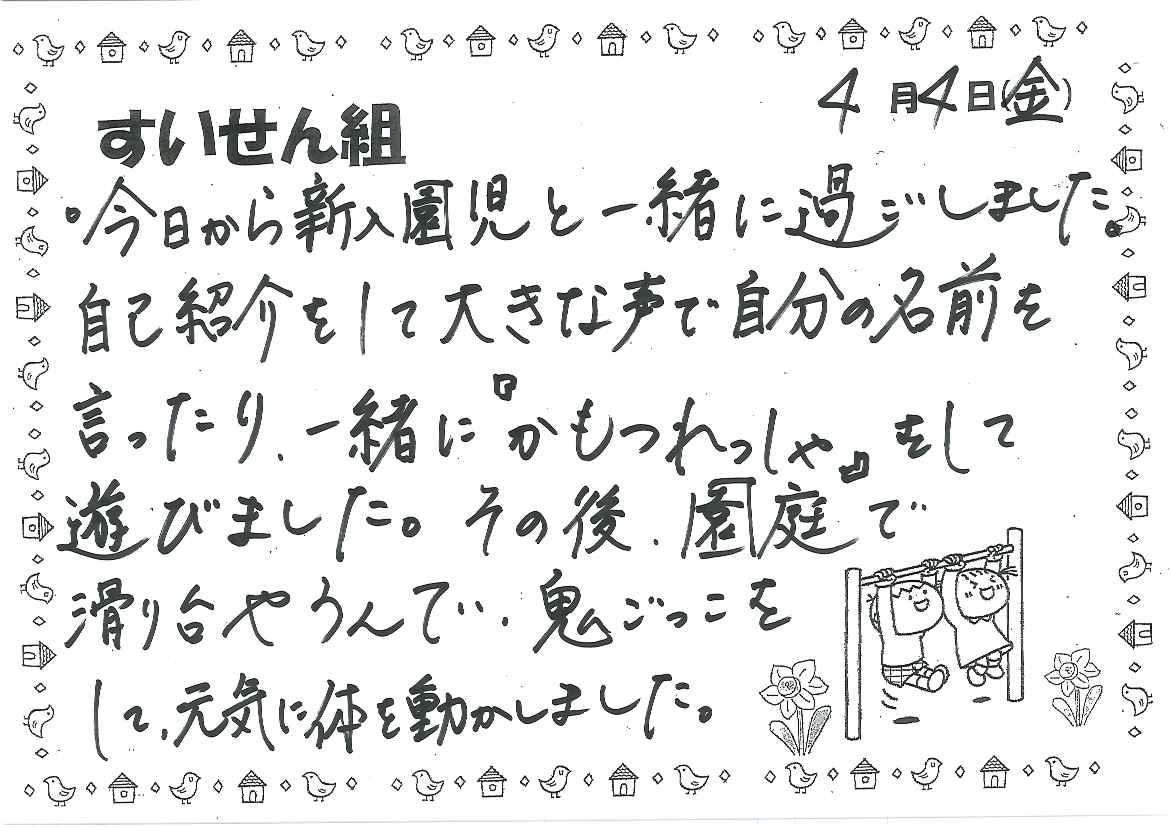 4月4日(金)
すいせん組
。今日から新入園児と一緒に過ごしました。
自己紹介をして大きな声で自分の名前を
言ったり、一緒に『かもつれっしゃ』をして
遊びました。その後、園庭で
滑り台やうんてい、鬼ごっこを
して、元気に体を動かしました。